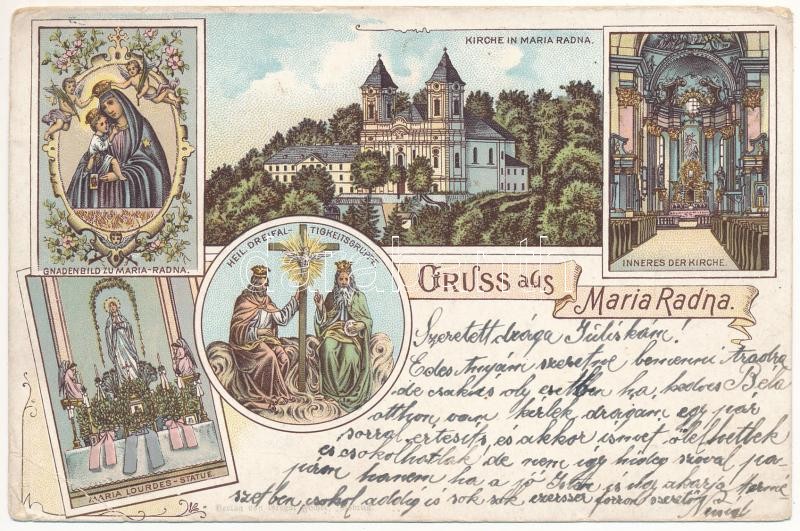 KIRCHE IN MARIA RADNA.
GNADENBILD ZU MARIA-RADNA.
INNERES DER KIRCHE.
HEIL. DREIFAL-TIGKEITSGRUPPE.
GRUSS aus
Maria Radna.
MARIA LOURDES-STATUE.
Szeretett drága Juliskám!
Édes Anyám szeretne bemenni Aradra
de csakis oly esetben ha, kedves Béla
otthon van kérlek drágám egy pár
sorral értesíts, és akkor ismét ölelhetlek
és csokolhatlak de nem így hideg szóval pa-
píron hanem ha a jó Isten is úgy akarja termé
szetben csokol addig is sok sok ezerszer forron szerető
Verlag von